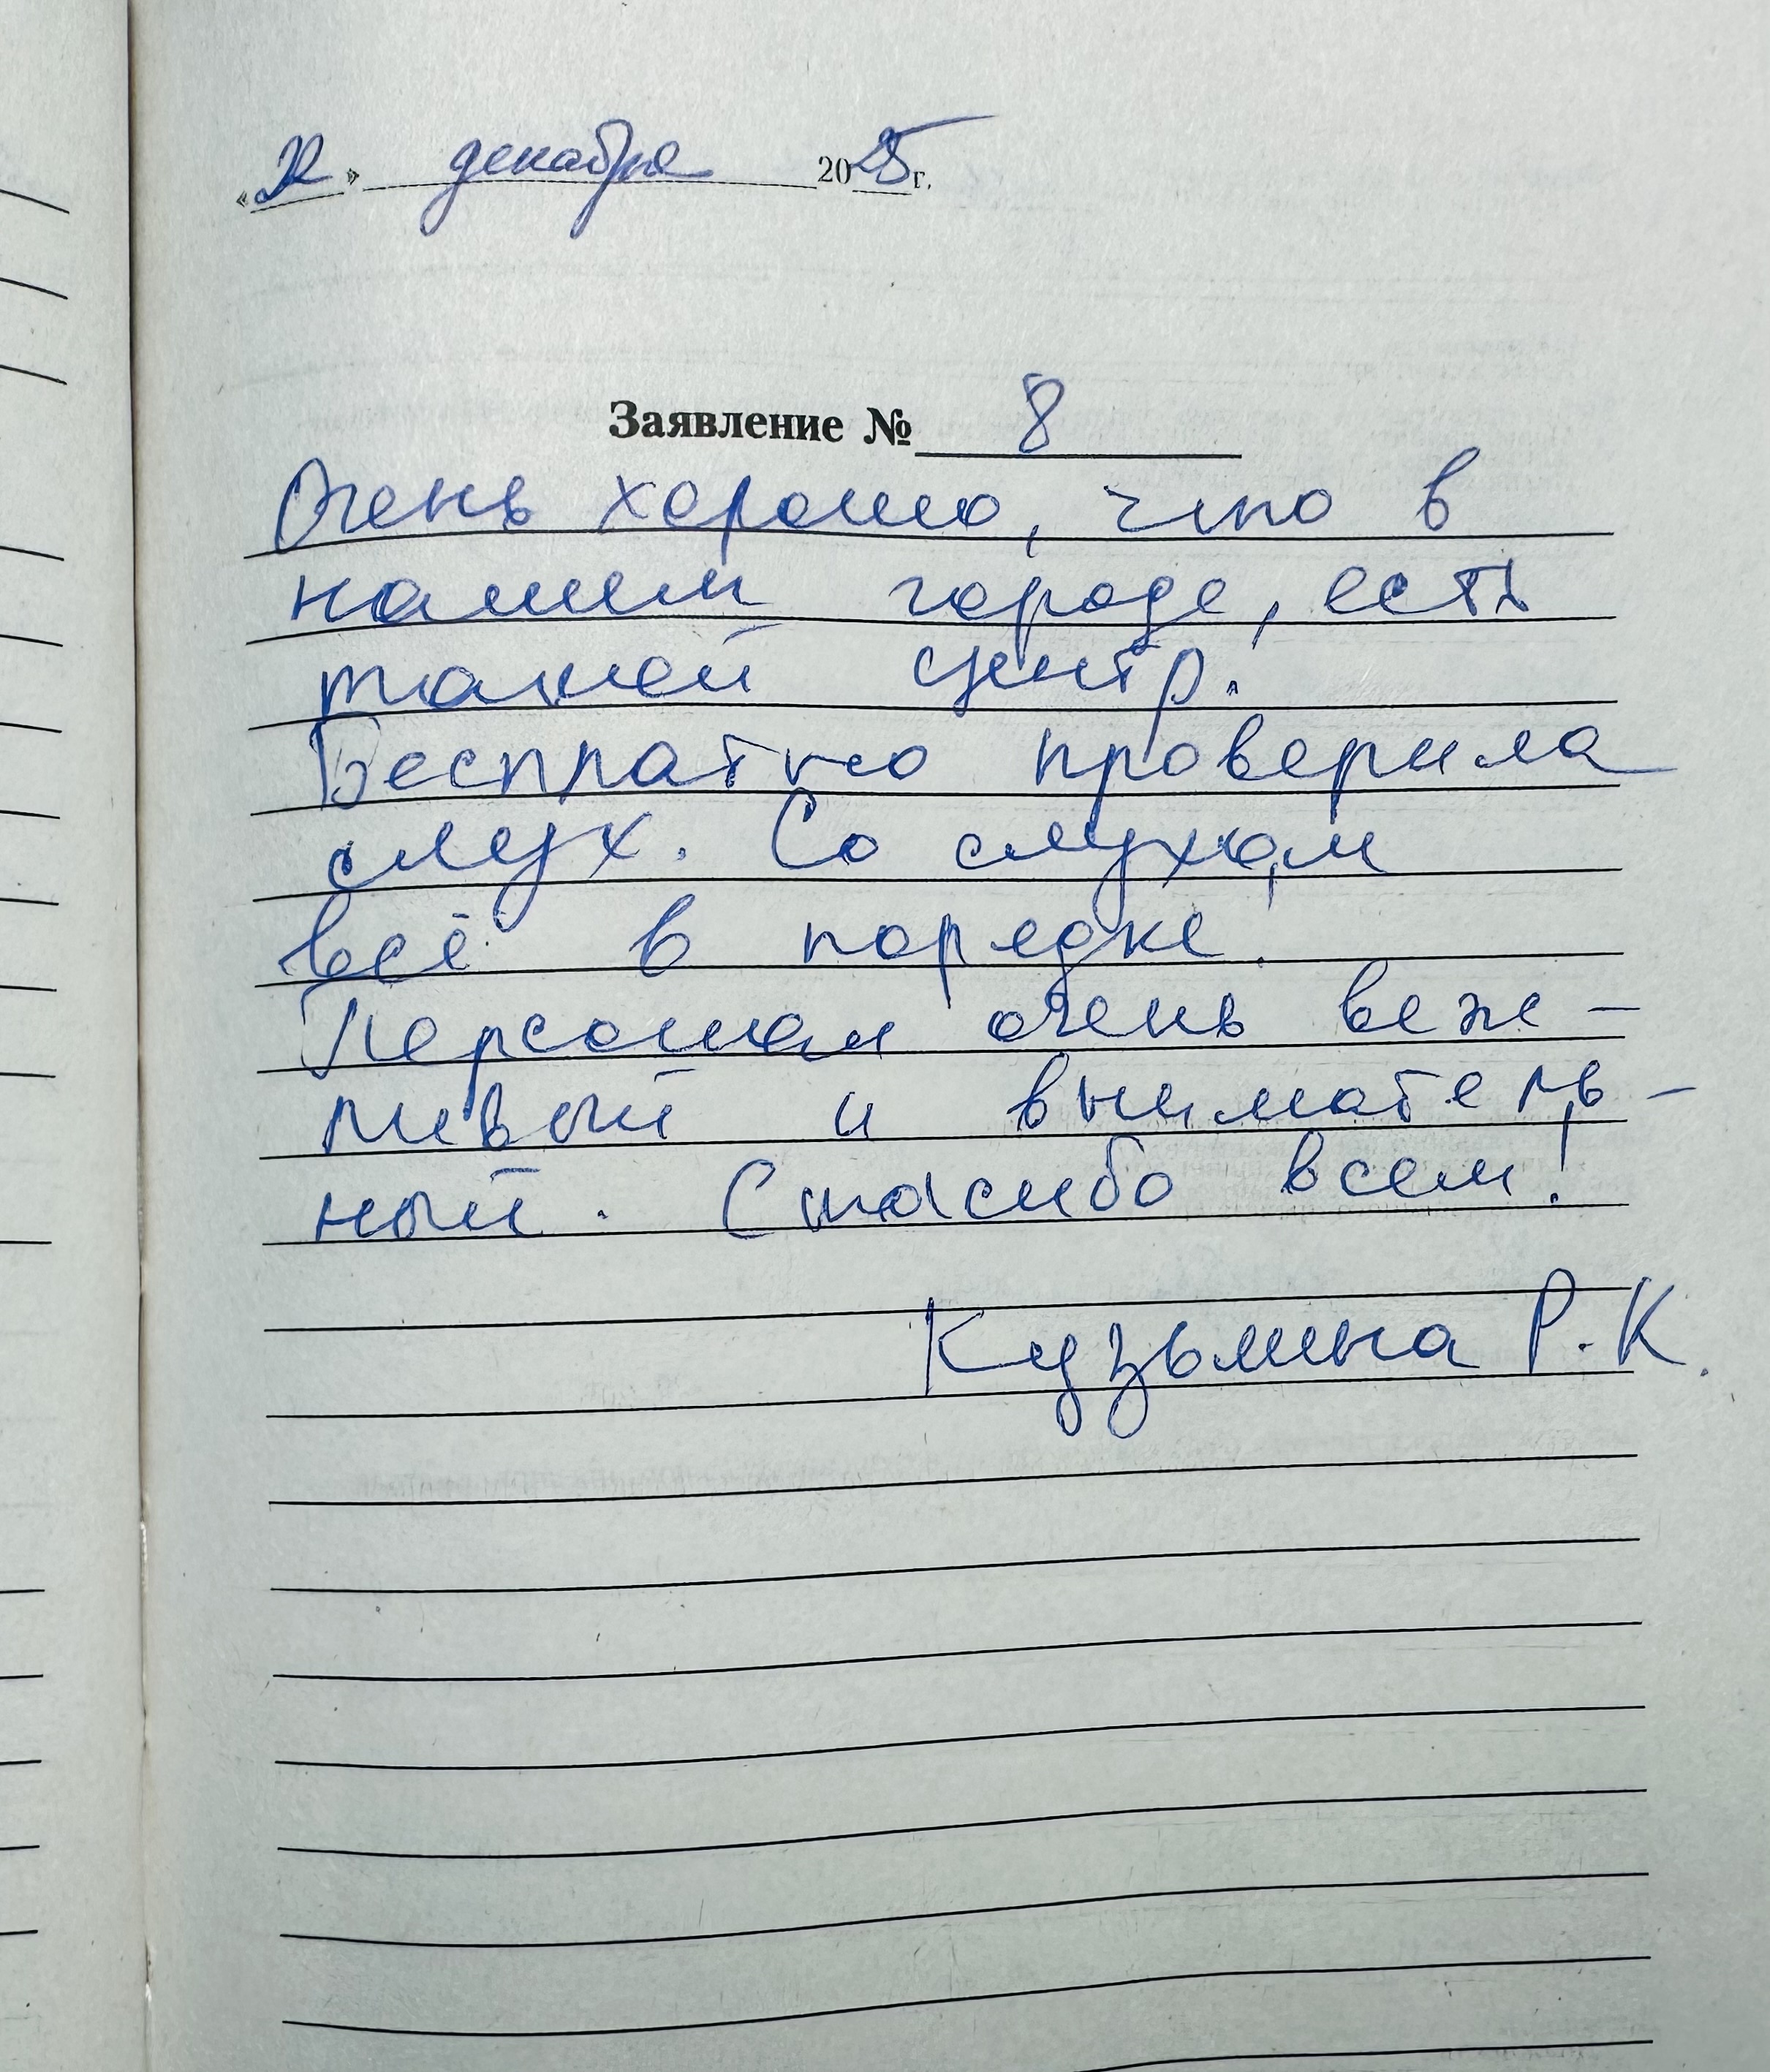 «22» декабря 2025 г.
Заявление № 8
Очень хорошо, что в
нашем городе, есть
такой центр.
Бесплатно проверила
слух. Со слухом
всё в порядке.
Персонал очень веж-
ливый и вниматель-
ный. Спасибо всем!
Кузьмина Р.К.